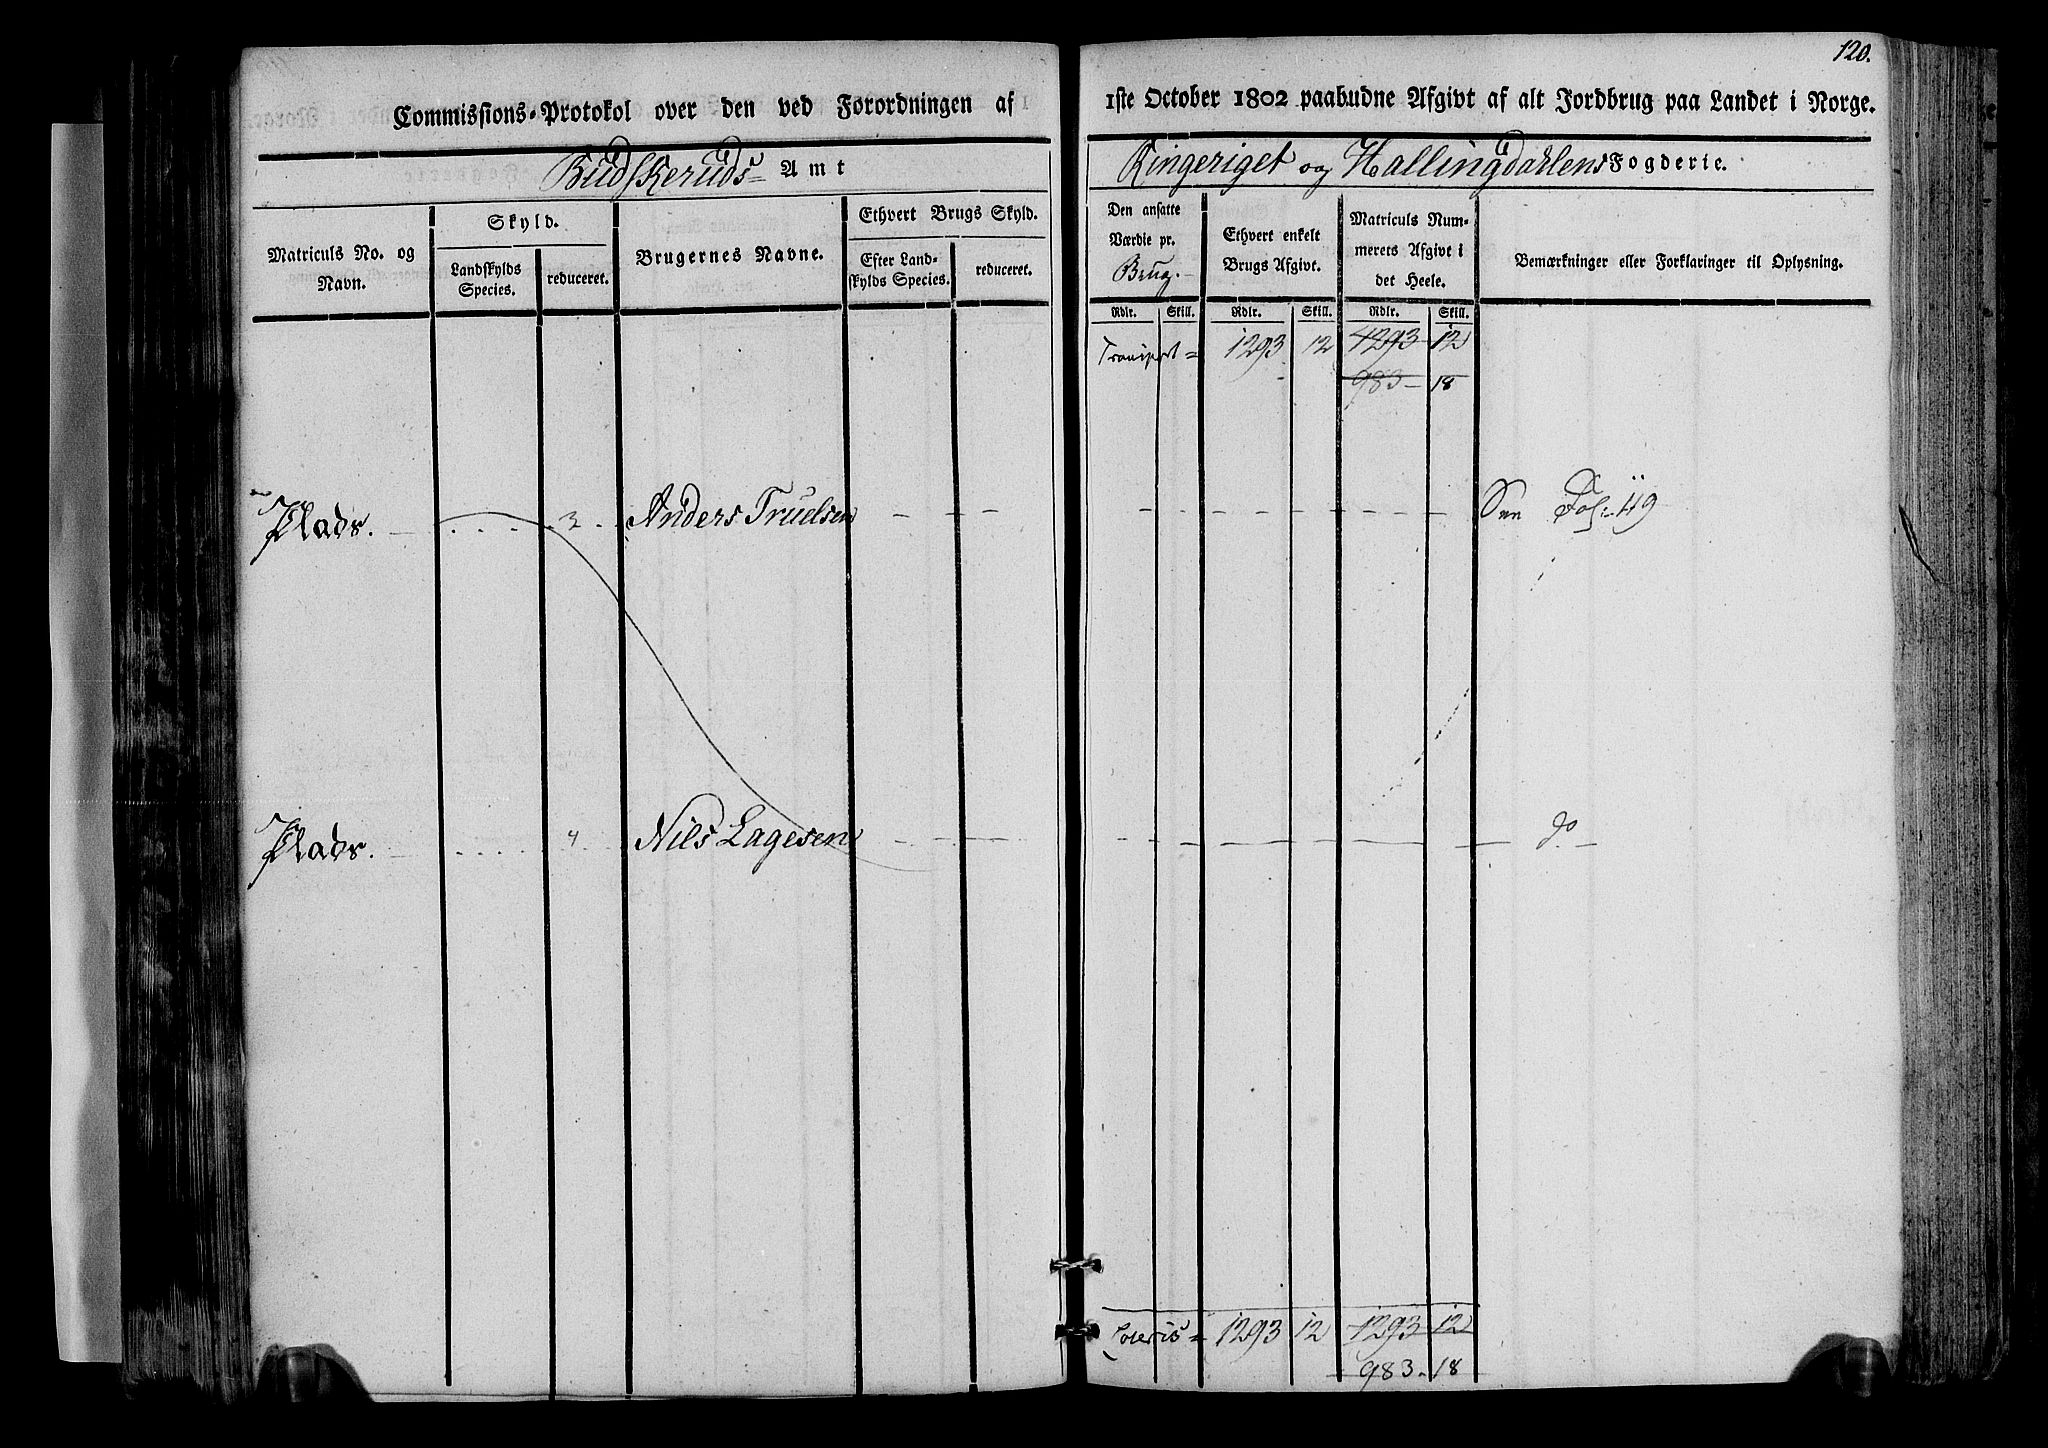 120.
Commissions-Protokol over den ved Forordningen af 1ste October 1802 paabudne Afgivt af alt Jordbrug paa Landet i Norge.
Budskeruds Amt Ringeriget og Hallingdahlens Fogderie.
Matriculs No. og Navn.
Skyld.
Landskylds Species.
reduceret.
Brugernes Navne.
Ethvert Brugs Skyld.
Efter Landskylds Species.
reduceret.
Den ansatte Værdie pr. Brug.
Ethvert enkelt Brugs Afgivt.
Matriculs Nummerets Afgivt i det Heele.
Bemærkninger eller Forklaringer til Oplysning.
Rdlr. Skill. Rdlr. Skill. Rdlr. Skill.
Transport = 1293 12 1293 12
983 - 18
Plads. 3 Anders Truelsen See Fol: 49
Plads. 4 Nils Lagesen do
Lateris = 1293 12 1293 12
983. 18